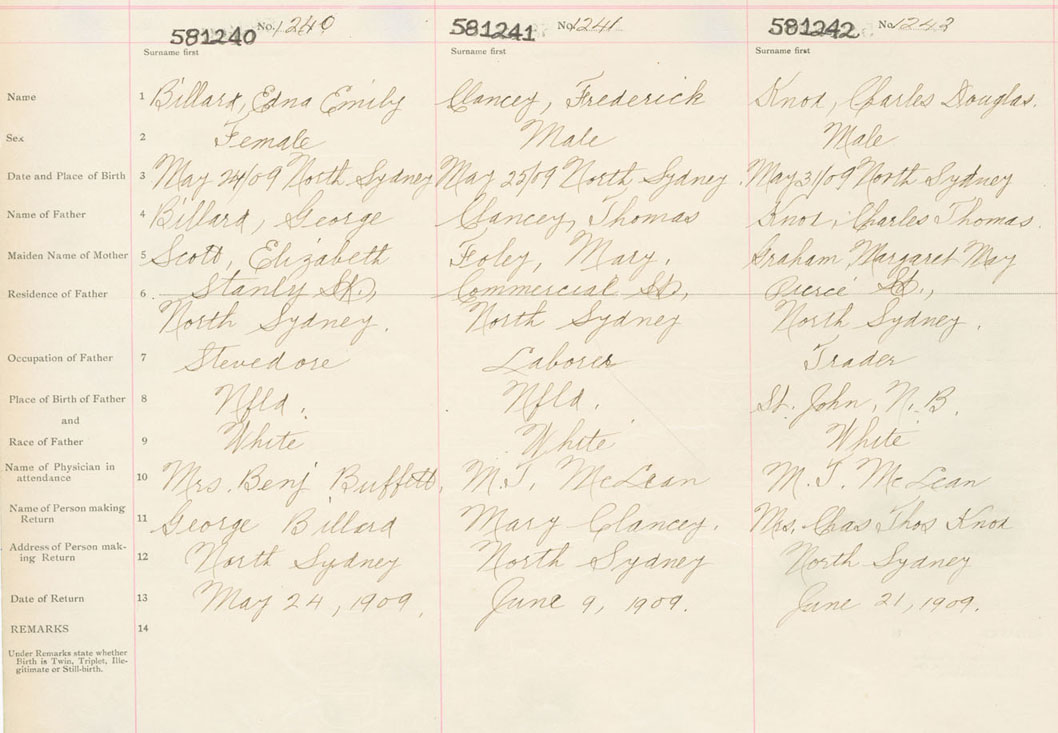 581240 No. 1240 581241 No. 1241 581242 No. 1242
Surname first Surname first Surname first
Name 1 Billard, Edna Emily Clancey, Frederick Knox, Charles Douglas.
Sex 2 Female Male Male
Date and Place of Birth 3 May 24/09 North Sydney May 25/09 North Sydney May 31/09 North Sydney
Name of Father 4 Billard, George Clancey, Thomas Knox, Charles Thomas.
Maiden Name of Mother 5 Scott, Elizabeth Foley, Mary. Graham, Margaret May
Residence of Father 6 Stanly St., Commercial St., Pierce St.,
North Sydney. North Sydney North Sydney.
Occupation of Father 7 Stevedore Laborer Trader
Place of Birth of Father 8 Nfld. Nfld. St. John, N. B.
and
Race of Father 9 White White White
Name of Physician in
attendance 10 Mrs. Benj Buffett. M. T. McLean M. T. McLean
Name of Person making
Return 11 George Billard Mary Clancey. Mrs. Chas Thos Knox
Address of Person mak-
ing Return 12 North Sydney North Sydney North Sydney
Date of Return 13 May 24, 1909. June 9, 1909. June 21, 1909.
REMARKS 14
Under Remarks state whether
Birth is Twin, Triplet, Ille-
gitimate or Still-birth.